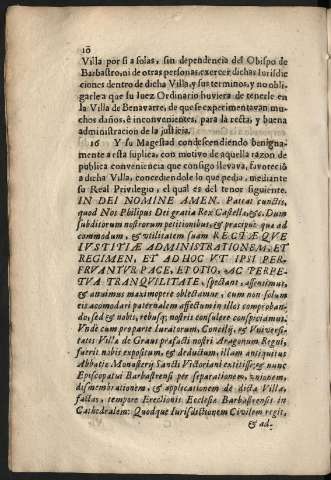 10
Villa por si a solas, sin dependencia del Obispo de
Barbastro, ni de otras personas, exercer dichas Iurisdic
ciones dentro de dicha Villa, y sus terminos, y no obli-
garle a que su Iuez Ordinario huviera de tenerle en
la Villa de Benavarre, de que se experimentavan mu-
chos daños, è inconvenientes, para la recta, y buena
administracion de la justicia.
16 Y su Magestad condescendiendo benigna-
mente a esta suplica, con motivo de aquella razon de
publica conveniencia que consigo llevava, favoreciò
a dicha Villa, concediendole lo que pedia, mediante
su Real Privilegio, el qual es del tenor siguiente.
IN DEI NOMINE AMEN. Pateat cunctis,
quod Nos Philipus Dei gratia Rex Castellæ, &c. Dum
subditorum nostrorum petitionibus, & præcipuè quæ ad
commodum, & vtilitatem suam RECTÆ QVE
IVSTITIÆ ADMINISTRATIONEM, ET
REGIMEN, ET AD HOC VT IPSI PER-
FRVANTVR PACE, ET OTIO, AC PERPE-
TVA TRANQVILITATE, spectant, assentimur,
& animus maximopere oblectamur, cum non solum
eis acomodari paternalem affectum in illos comproban-
do, sed & nobis, rebusq; nostris consulere conspiciamus.
Vnde cum proparte Iuratorum, Concilij, & Vniversi-
tates Villa de Graus præfacti nostri Aragonum Regni,
fuerit nobis expositum, & deductum, illam antiquitus
Abbatiæ Monasterij Sancti Victoriani extitisse; & nunc
Episcopatui Barbastrensi per separationem, vnionem,
dismembrationem, & applicationem de dicta Villa,
factas, tempore Erectionis Ecclesiæ Barbastrensis in
Cathedralem: Quodque Iurisdictionem Civilem regit,
& ad-